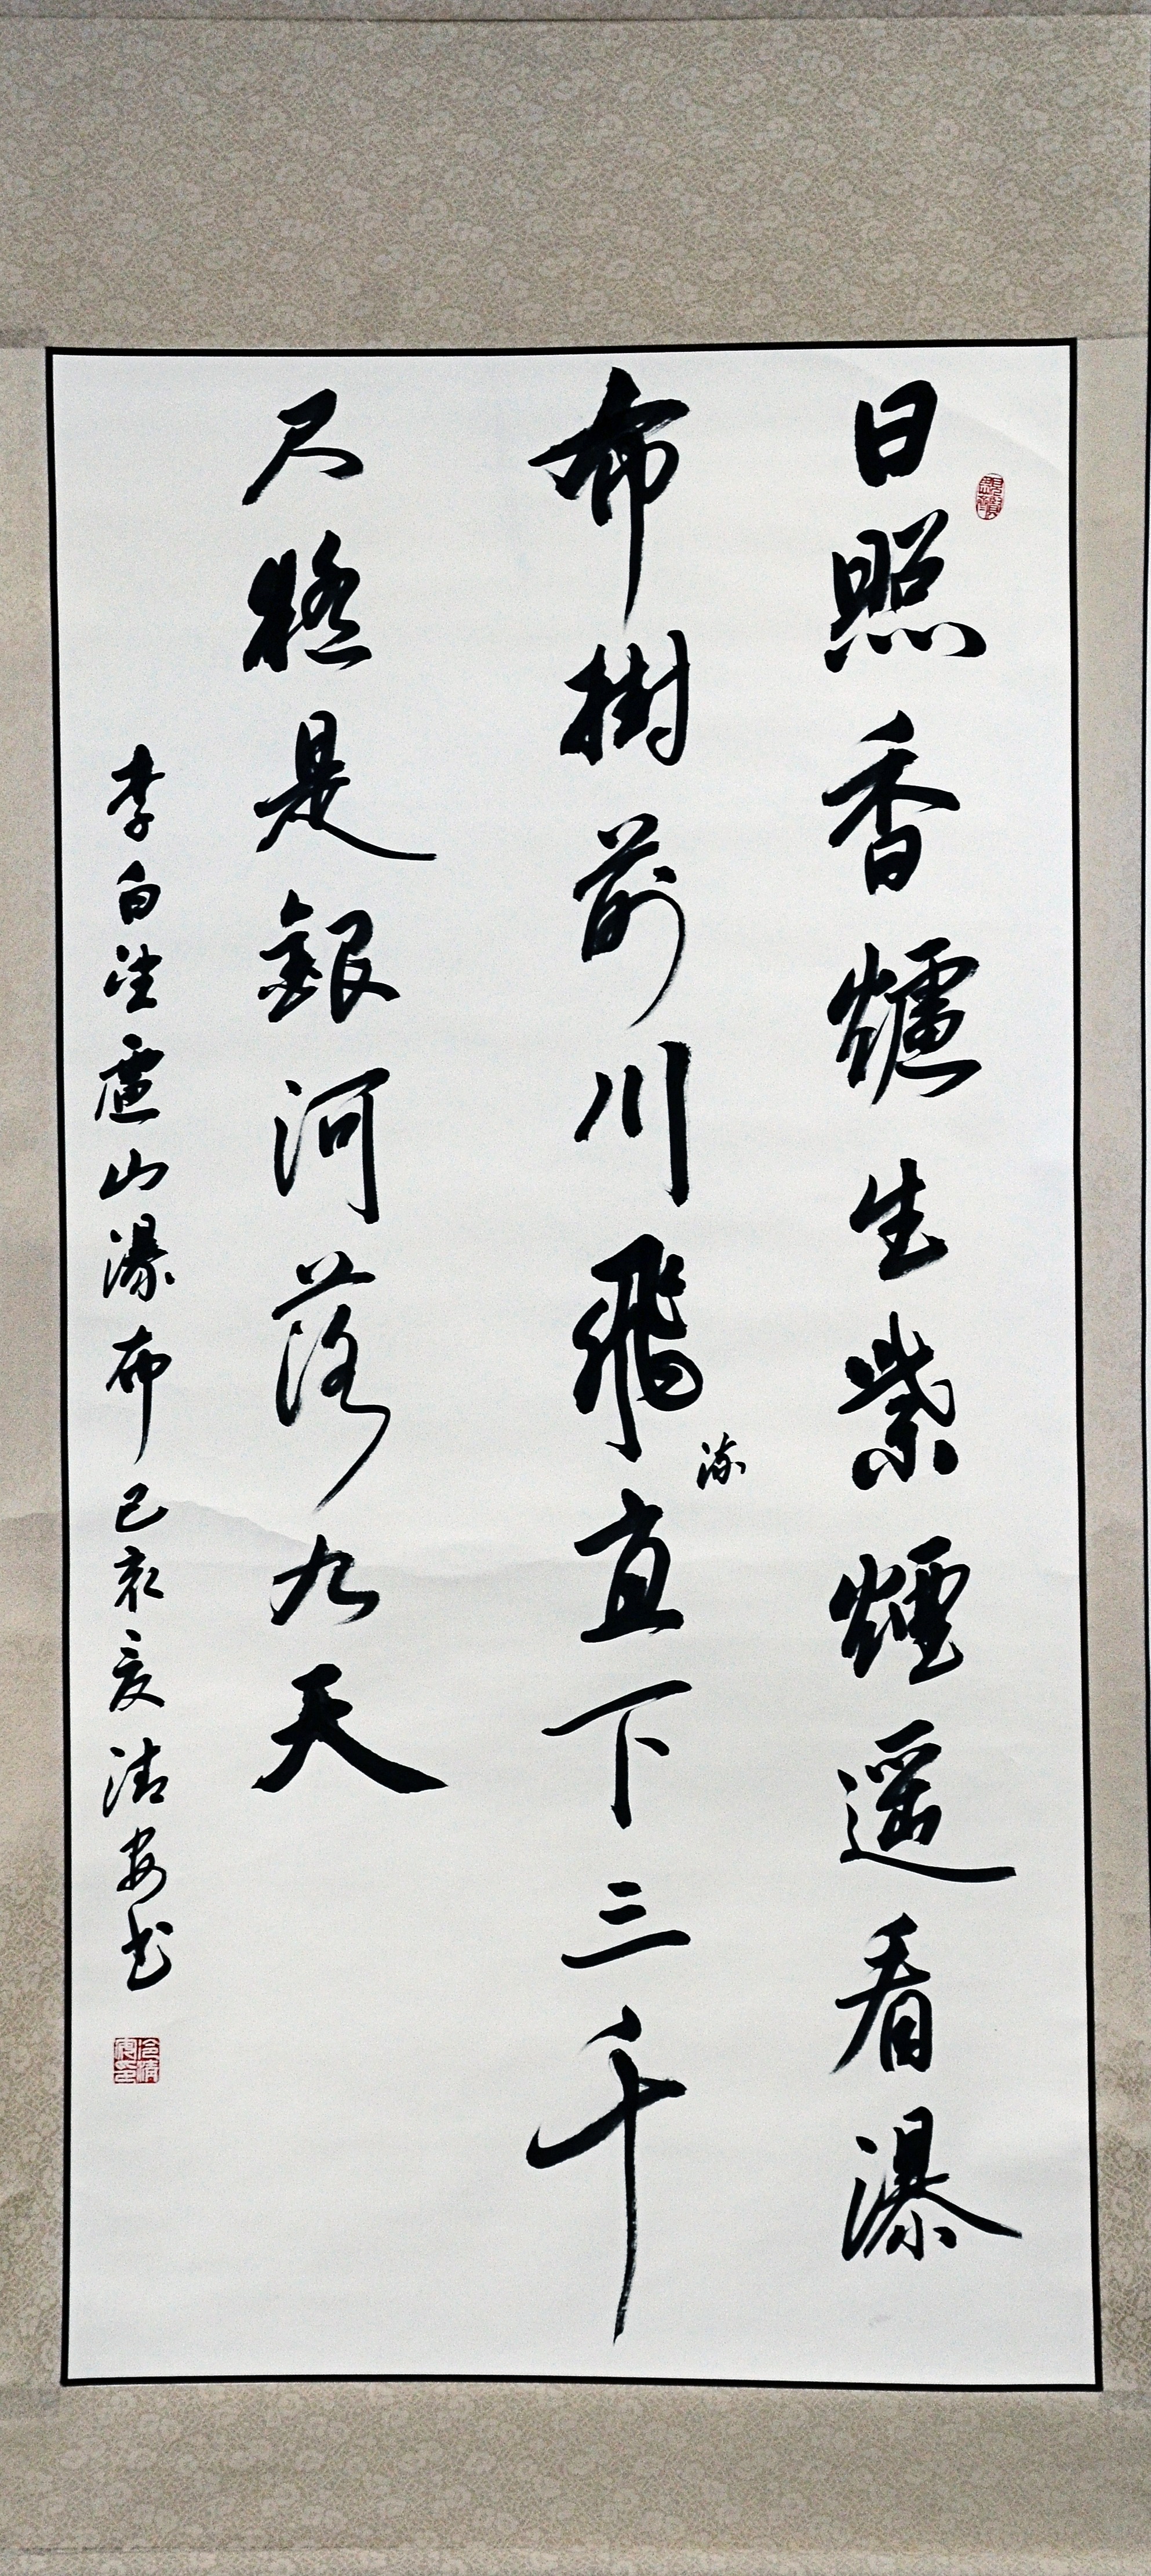 日照香爐生紫煙遥看瀑
布樹前川飛流直下三千
尺疑是銀河落九天
李白望廬山瀑布己亥夏清安书